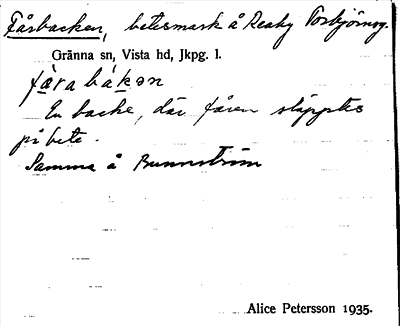 Fårbacken, betesmark å Reaby Torbjörnsg.
Gränna sn, Vista hd, Jkpg. l.
fårabakən
En backe, där fåren släpptes
på bete.
Samma å Brunnström
Alice Petersson 1935.